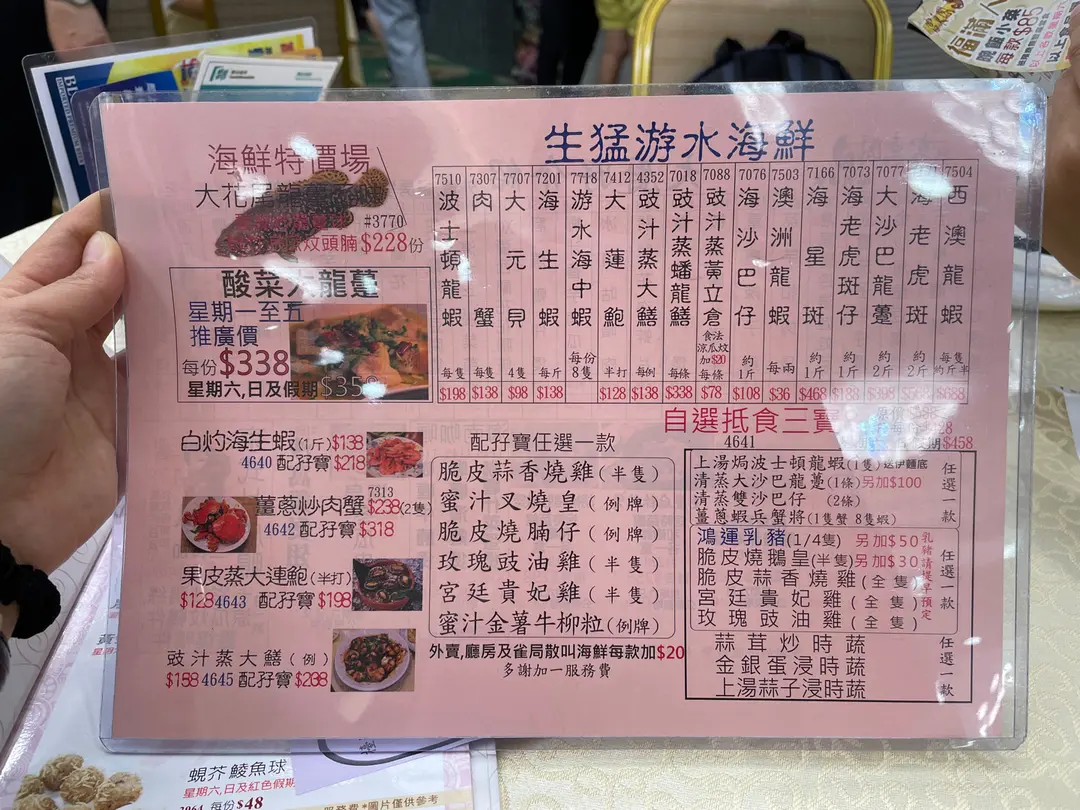 生猛游水海鮮
海鮮特價場
#3770
炆頭腩$228份
酸菜大龍躉
星期一至五
推廣價
每份$338
星期六,日及假期$358
7510 波士頓龍蝦 每隻 $198
7307 肉蟹 每隻 $138
7707 大元貝 4隻 $98
7201 海生蝦 每斤 $138
7718 游水海中蝦 每份8隻 $138
7412 大蓮鮑 半打 $128
4352 豉汁蒸大鱔 每例 $138
7018 豉汁蒸蟠龍鱔 每條 $338
7088 豉汁蒸黃立倉 食法涼瓜炆加$20 每條 $78
7076 海沙巴仔 約1斤 $108
7503 澳洲龍蝦 每兩 $36
7166 海星斑 約1斤 $468
7073 海老虎斑仔 約1斤 $188
7077 大沙巴龍躉 約2斤 $398
海老虎斑 約2斤 $568
7504 西澳龍蝦 每隻約斤半 $688
白灼海生蝦(1斤)$138
4640 配孖寶$218
7313
薑蔥炒肉蟹$238(2隻)
4642 配孖寶$318
果皮蒸大連鮑(半打)
$128 4643 配孖寶$198
豉汁蒸大鱔(例)
4645 配孖寶
配孖寶任選一款
脆皮蒜香燒雞(半隻)
蜜汁叉燒皇(例牌)
脆皮燒腩仔(例牌)
玫瑰豉油雞(半隻)
宮廷貴妃雞(半隻)
蜜汁金薯牛柳粒(例牌)
外賣,廳房及雀局散叫海鮮每款加$20
多謝加一服務費
自選抵食三寶
4641
$458
上湯焗波士頓龍蝦(1隻)送伊麵底
清蒸大沙巴龍躉(1條)另加$100
清蒸雙沙巴仔 (2條)
薑蔥蝦兵蟹將(1隻蟹 8隻蝦)
任選一款
鴻運乳豬(1/4隻) 另加$50
脆皮燒鵝皇(半隻)另加$30
脆皮蒜香燒雞(全隻)
宮廷貴妃雞(全隻)
玫瑰豉油雞(全隻)
乳豬請提早預定
任選一款
蒜茸炒時蔬
金銀蛋浸時蔬
上湯蒜子浸時蔬
任選一款
蜆芥鯪魚球
星期六,日及紅色假期
每份$48
*圖片僅供參考